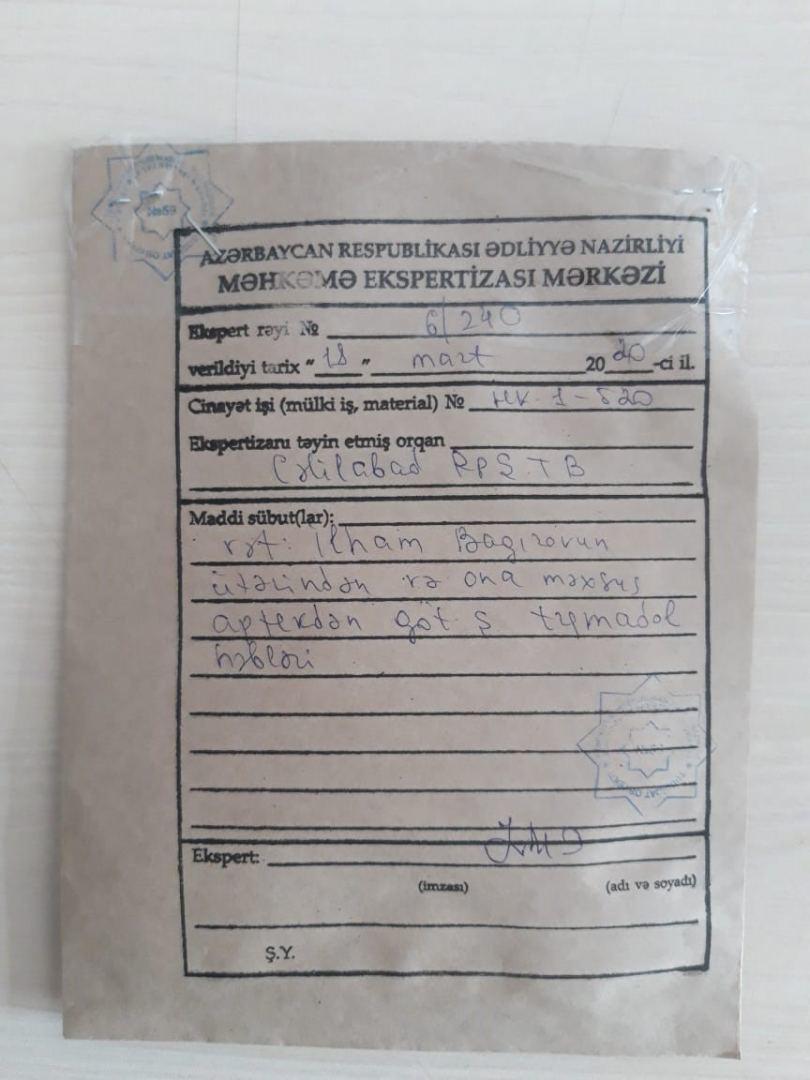 AZƏRBAYCAN RESPUBLİKASI ƏDLİYYƏ NAZİRLİYİ
MƏHKƏMƏ EKSPERTİZASI MƏRKƏZİ
Ekspert rəyi № 6/240
verildiyi tarix "18" mart 2020-ci il.
Cinayət işi (mülki iş, material) № HK-1-820
Ekspertizanı təyin etmiş orqan
Cəlilabad RPŞTB
Maddi sübut(lar):
vət: İlham Bagırovun
üzərindən və ona məxsus
aptekdən göt-ş tramadol
həbləri
Ekspert:
(imzası) (adı və soyadı)
Ş.Y.